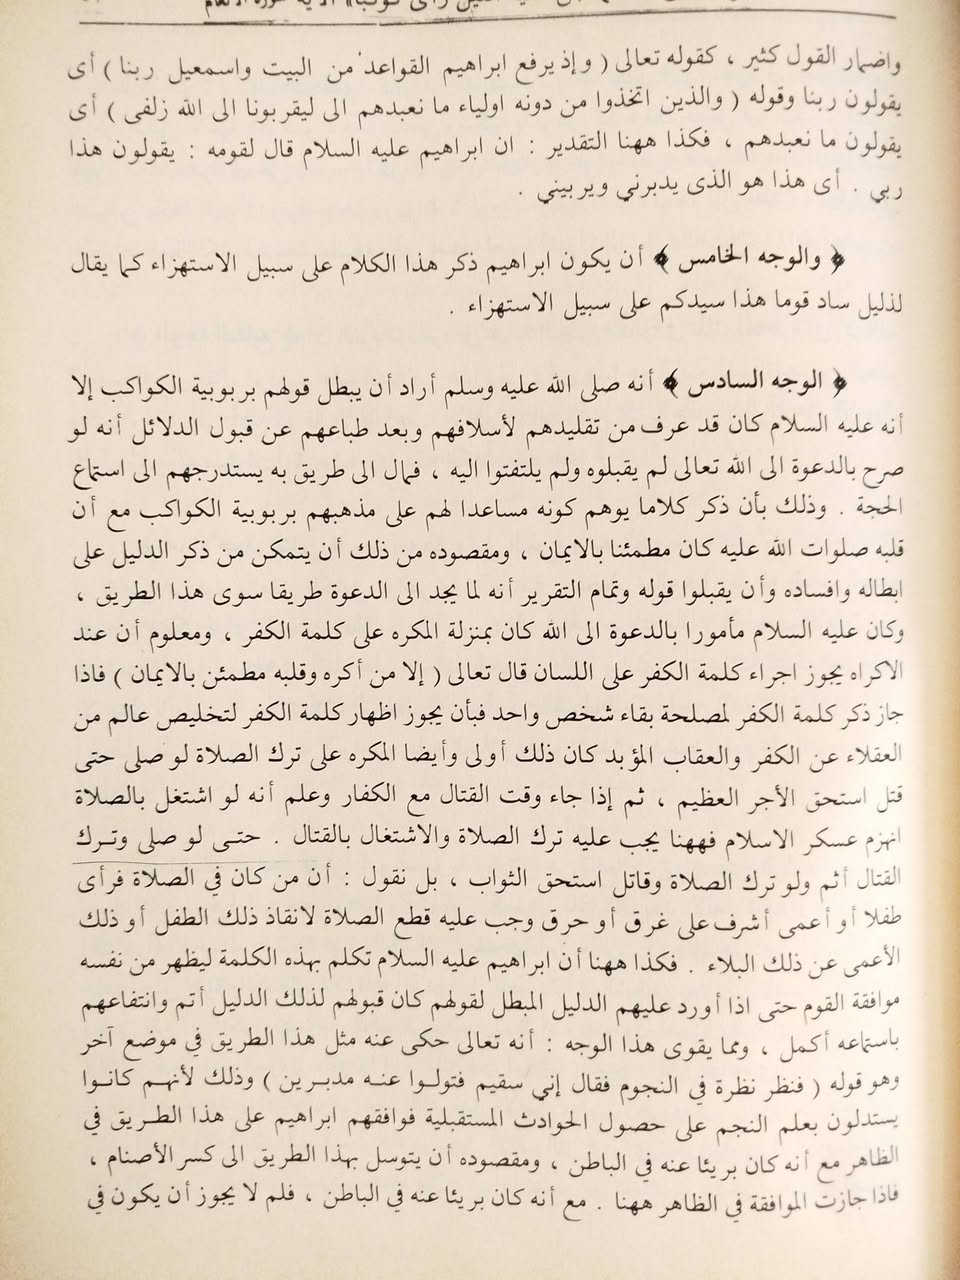 واضمار القول كثير ، كقوله تعالى ( وإذ يرفع ابراهيم القواعد من البيت واسمعيل ربنا ) أى
يقولون ربنا وقوله ( والذين اتخذوا من دونه اولياء ما نعبدهم الى ليقربونا الى الله زلفى ) أى
يقولون ما نعبدهم ، فكذا ههنا التقدير : ان ابراهيم عليه السلام قال لقومه : يقولون هذا
ربي . أى هذا هو الذى يدبرني ويربيني .
﴿ والوجه الخامس ﴾ أن يكون ابراهيم ذكر هذا الكلام على سبيل الاستهزاء كما يقال
لذليل ساد قوما هذا سيدكم على سبيل الاستهزاء .
﴿ الوجه السادس ﴾ أنه صلى الله عليه وسلم أراد أن يبطل قولهم بربوبية الكواكب إلا
أنه عليه السلام كان قد عرف من تقليدهم لأسلافهم وبعد طباعهم عن قبول الدلائل أنه لو
صرح بالدعوة الى الله تعالى لم يقبلوه ولم يلتفتوا اليه ، فمال الى طريق به يستدرجهم الى استماع
الحجة . وذلك بأن ذكر كلاما يوهم كونه مساعدا لهم على مذهبهم بربوبية الكواكب مع أن
قلبه صلوات الله عليه كان مطمئنا بالايمان ، ومقصوده من ذلك أن يتمكن من ذكر الدليل على
ابطاله وافساده وأن يقبلوا قوله وتمام التقرير أنه لما يجد الى الدعوة طريقا سوى هذا الطريق ،
وكان عليه السلام مأمورا بالدعوة الى الله كان بمنزلة المكره على كلمة الكفر ، ومعلوم أن عند
الاكراه يجوز اجراء كلمة الكفر على اللسان قال تعالى ( إلا من أكره وقلبه مطمئن بالايمان ) فاذا
جاز ذكر كلمة الكفر لمصلحة بقاء شخص واحد فبأن يجوز اظهار كلمة الكفر لتخليص عالم من
العقلاء عن الكفر والعقاب المؤبد كان ذلك أولى وأيضا المكره على ترك الصلاة لو صلى حتى
قتل استحق الأجر العظيم ، ثم إذا جاء وقت القتال مع الكفار وعلم أنه لو اشتغل بالصلاة
انهزم عسكر الاسلام فههنا يجب عليه ترك الصلاة والاشتغال بالقتال . حتى لو صلى وترك
القتال أثم ولو ترك الصلاة وقاتل استحق الثواب ، بل نقول : أن من كان في الصلاة فرأى
طفلا أو أعمى أشرف على غرق أو حرق وجب عليه قطع الصلاة لانقاذ ذلك الطفل أو ذلك
الأعمى عن ذلك البلاء . فكذا ههنا أن ابراهيم عليه السلام تكلم بهذه الكلمة ليظهر من نفسه
موافقة القوم حتى اذا أورد عليهم الدليل المبطل لقولهم كان قبولهم لذلك الدليل أتم وانتفاعهم
باستماعه أكمل ، ومما يقوى هذا الوجه : أنه تعالى حكى عنه مثل هذا الطريق في موضع آخر
وهو قوله ( فنظر نظرة في النجوم فقال إني سقيم فتولوا عنه مدبرين ) وذلك لأنهم كانوا
يستدلون بعلم النجم على حصول الحوادث المستقبلية فوافقهم ابراهيم على هذا الطريق في
الظاهر مع أنه كان بريئا عنه في الباطن ، ومقصوده أن يتوسل بهذا الطريق الى كسر الأصنام ،
فاذا جازت الموافقة في الظاهر ههنا . مع أنه كان بريئا عنه في الباطن ، فلم لا يجوز أن يكون في